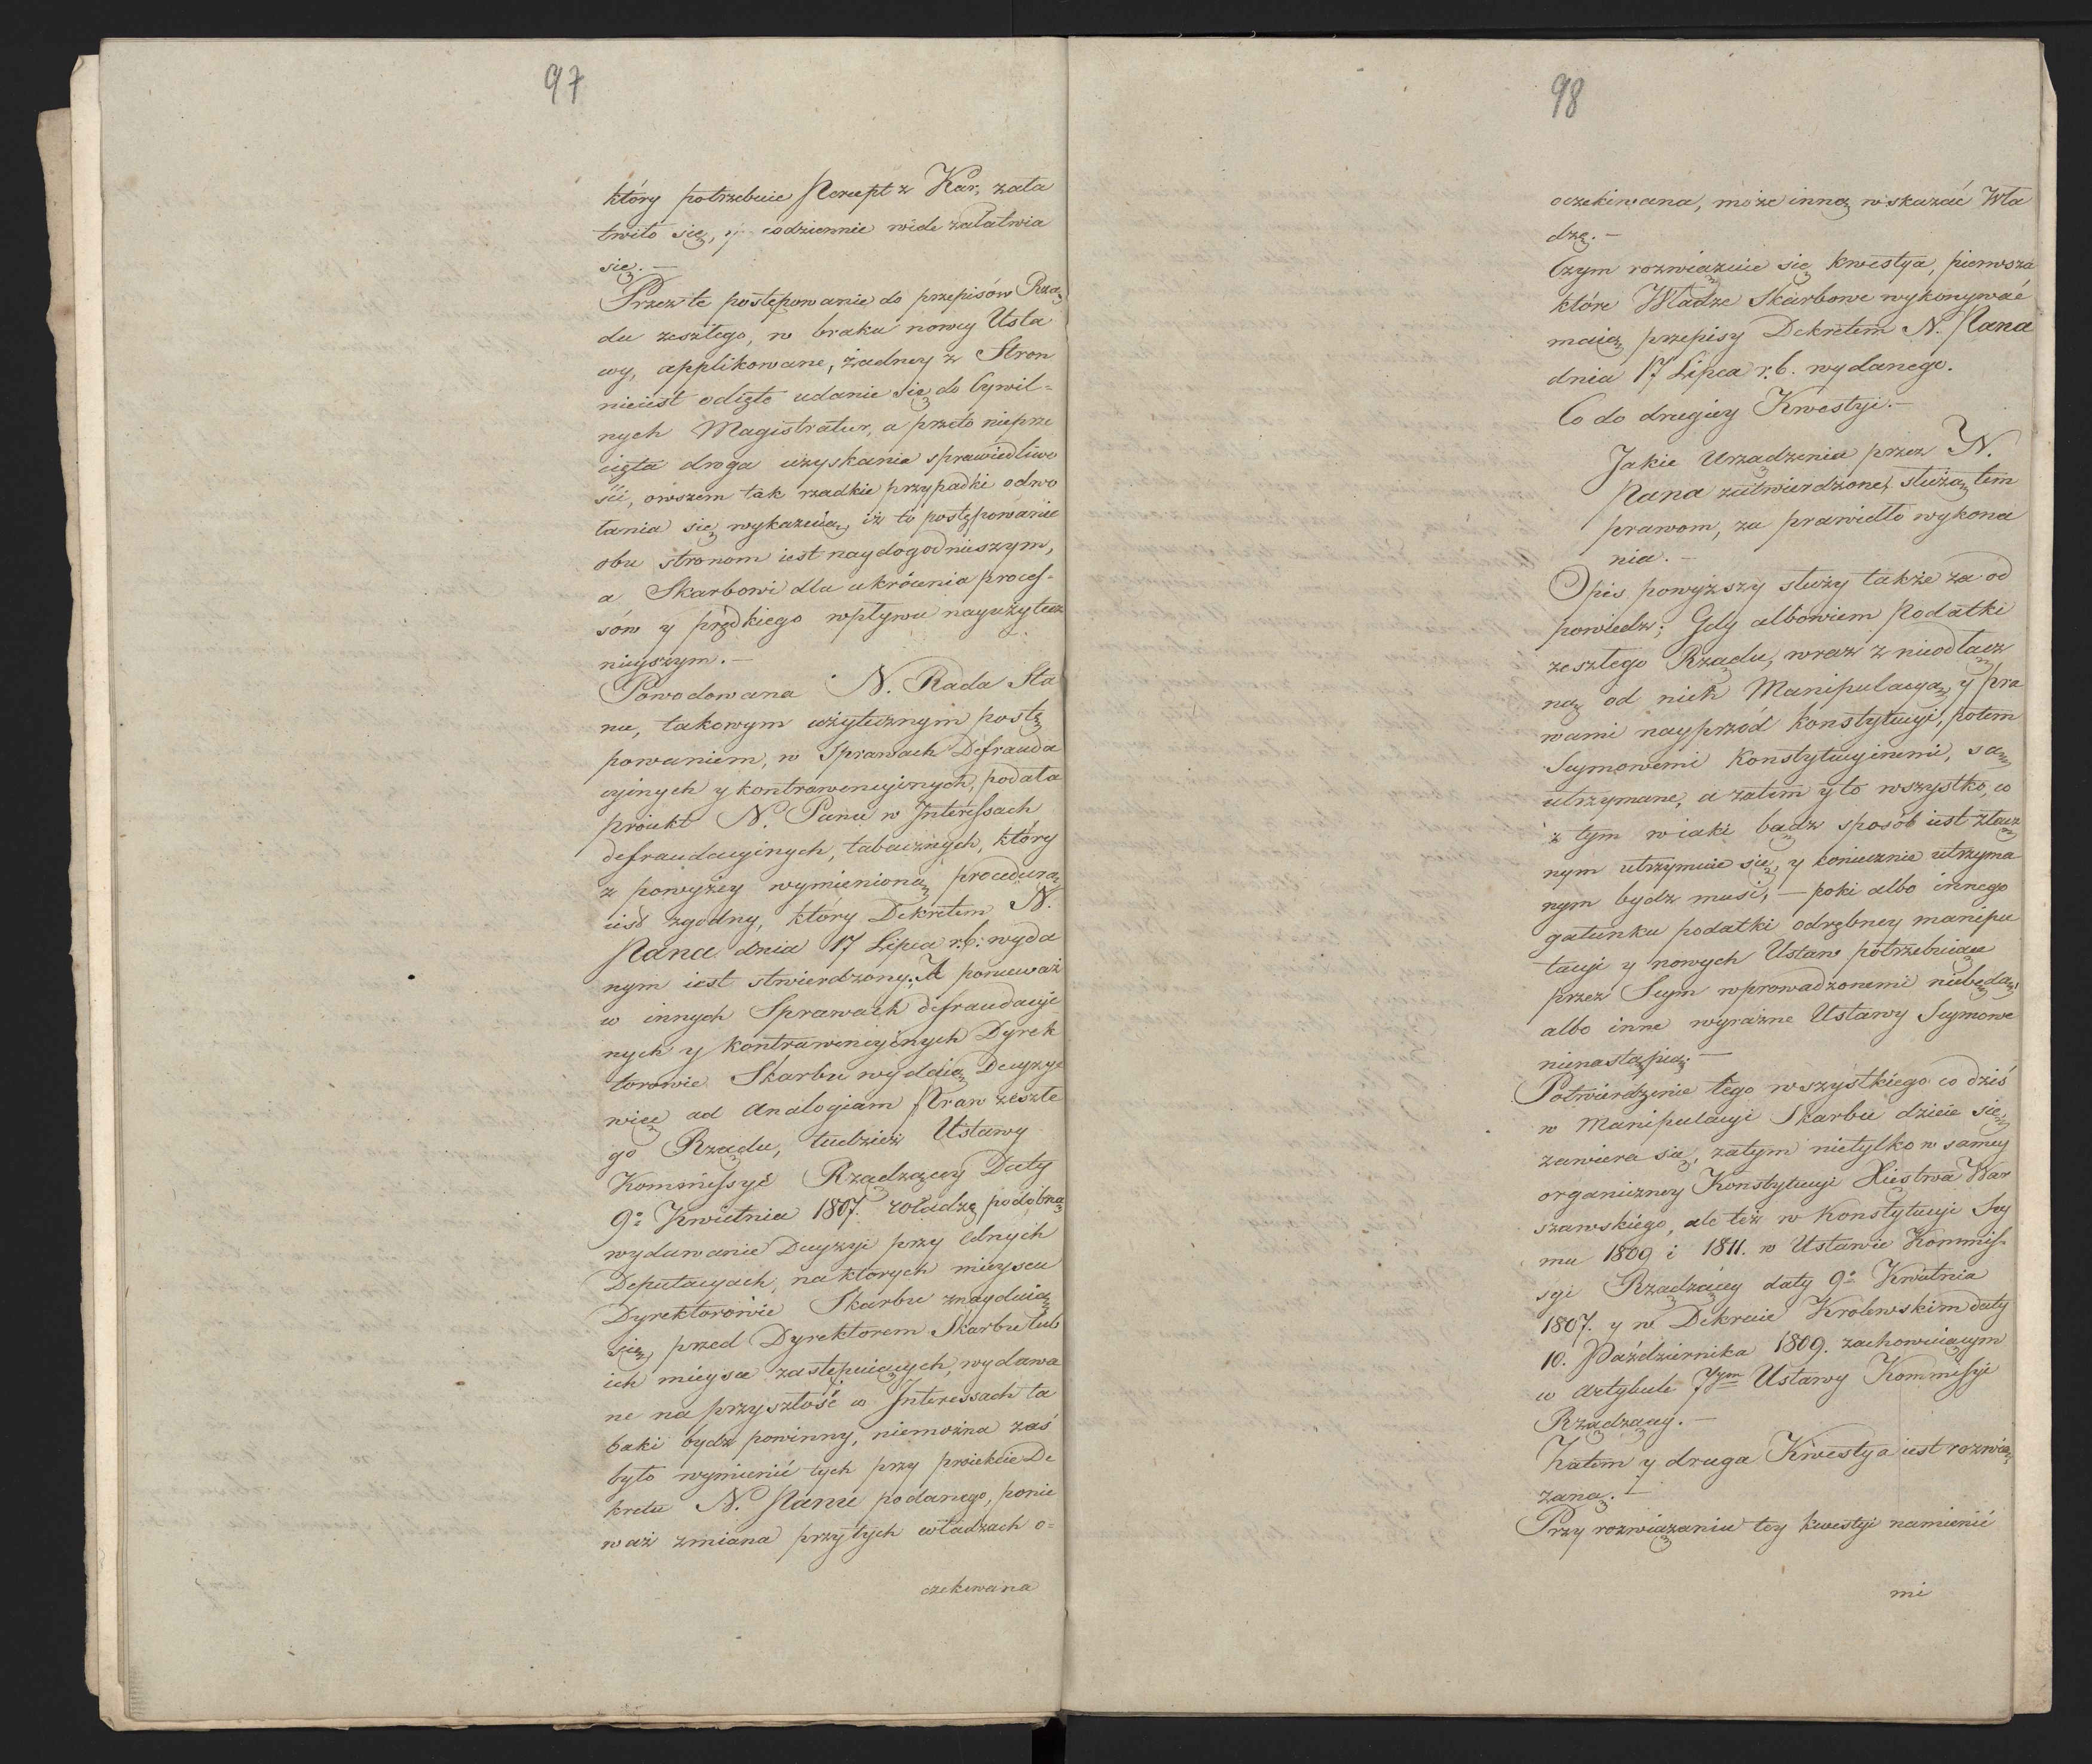 97
który potrzebuie Rerept z Kar, zała
twiło się, y codziennie wiele załatwia
się. —
Przez te postępowanie do przepisów Rzą
du zeszłego, w braku nowey Usta
wy, applikowane, żadney z Stron
nieiest odięte udanie się do Cywil=
nych Magistratur, a przeto nieprze
cięta droga uzyskania sprawiedliwo
ści, owszem tak rzadkie przypadki odwo
łania się wykazuią, iż to postępowanie
obu stronom iest naydogodnieyszym,
a Skarbowi dla ukrócenia proces-
sów y prędkiego wpływu nayużytecz
nieyszym. —
Powodowana N. Rada Sta
nu, takowym użytecznym postę
powaniem, w Sprawach Defrauda
cyinych y kontrawencyinych, podała
proiekt N. Panu w Interessach
defraudacyinych, tabacznych, który
z powyżey wymienioną procedurą
iest zgodny, który Dekretem N.
Pana dnia 17 Lipca r.b. wyda
nym iest stwierdzony. A ponieważ
w innych Sprawach defraudacyi
nych y kontrawencyinych Dyrek
torowie Skarbu wydaią Decyzye
więc ad analogiam Praw zeszłe
go Rządu, tudzież Ustawy
Kommissyi Rządzącey Daty
9º Kwietnia 1807. władzę podobną
wydawanie Decyzyi przy Celnych
Deputacyach, na których mieyscu
Dyrektorowie Skarbu znayduią
się, przed Dyrektorem Skarbu lub
ich mieysce zastępuiących, wydawa
ne na przyszłość w Interessach ta
baki bydź powinny, niemożna zaś
było wymienić tych przy proiekcie De
kretu N. Panu podanego, ponie
waż zmiana przy tych władzach o=
czekiwana
98
oczekiwana, może inną wskazać Wła
dzę. —
Czym rozwiązuie się kwestya, pierwsza
które Władze Skarbowe wykonywać
maią przepisy Dekretem N. Pana
dnia 17 Lipca r.b. wydanego.
Co do drugiey Kwestyi. —
Jakie Urządzenia przez N.
Pana zatwierdzone, służą tem
prawom, za prawidło wykona
nia. —
Opis powyższy służy także za od
powiedz; Gdy albowiem Podatki
zeszłego Rządu, wraz z nieodłącz
ną od nich Manipulacyą, y pra
wami nayprzód Konstytucyi, potem
Seymowemi Konstytucyinemi, są
utrzymane, a zatem y to wszystko, co
z tym w iaki bądz sposób iest złącz
nym utrzymuie się, y koniecznie utrzyma
nym bydz musi, — poki albo innego
gatunku podatki odrębney manipu
lacyi y nowych Ustaw potrzebuiące
przez Seym wprowadzonemi niebędą,
albo inne wyraźne Ustawy Seymowe
nienastąpią. —
Potwierdzenie tego wszystkiego co dziś
w Manipulacyi Skarbu dzieie się,
zawiera się, zatym nietylko w samey
organiczney Konstytucyi Xięstwa War
szawskiego, ale też w Konstytucyi Sey
mu 1809 i 1811. w Ustawie Kommis-
syi Rządzącey daty 9º Kwietnia
1807. y w Dekrecie Krolewskim daty
10. Października 1809. zachowuiącym
w artykule 7ym Ustawy Kommissyi
Rządzącey. —
Zatem y druga Kwestya iest rozwią
zaną. —
Przy rozwiązaniu tey kwestyi namienić
mi